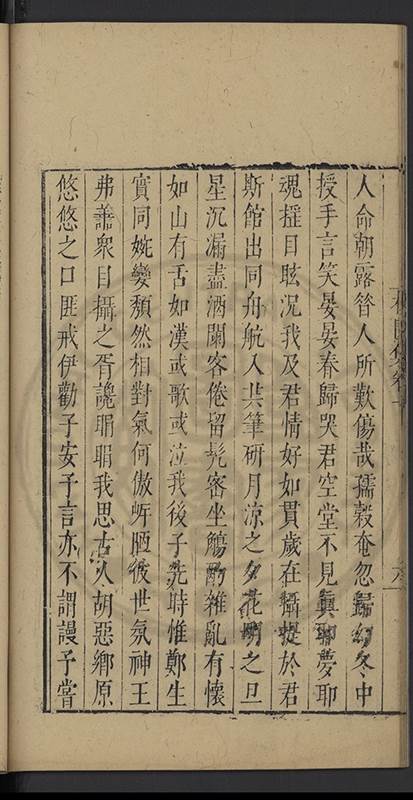 人命朝露昔人所歎傷哉孺穀奄忽歸幻冬中
授手言笑晏晏春歸哭君空堂不見眞耶夢耶
魂摇目眩況我及君情好如貫歲在攝提於君
斯館出同舟航入共筆研月凉之夕花明之旦
星沉漏盡酒闌客倦留髡密坐觴酌雜亂有懷
如山有舌如漢或歌或泣我後子先時惟鄭生
實同婉孌頹然相對氣何傲岸陋彼世氛神王
弗善衆目攝之胥讒睊睊我思古人胡惡鄉原
悠悠之口匪戒伊勸子安予言亦不謂謾予嘗